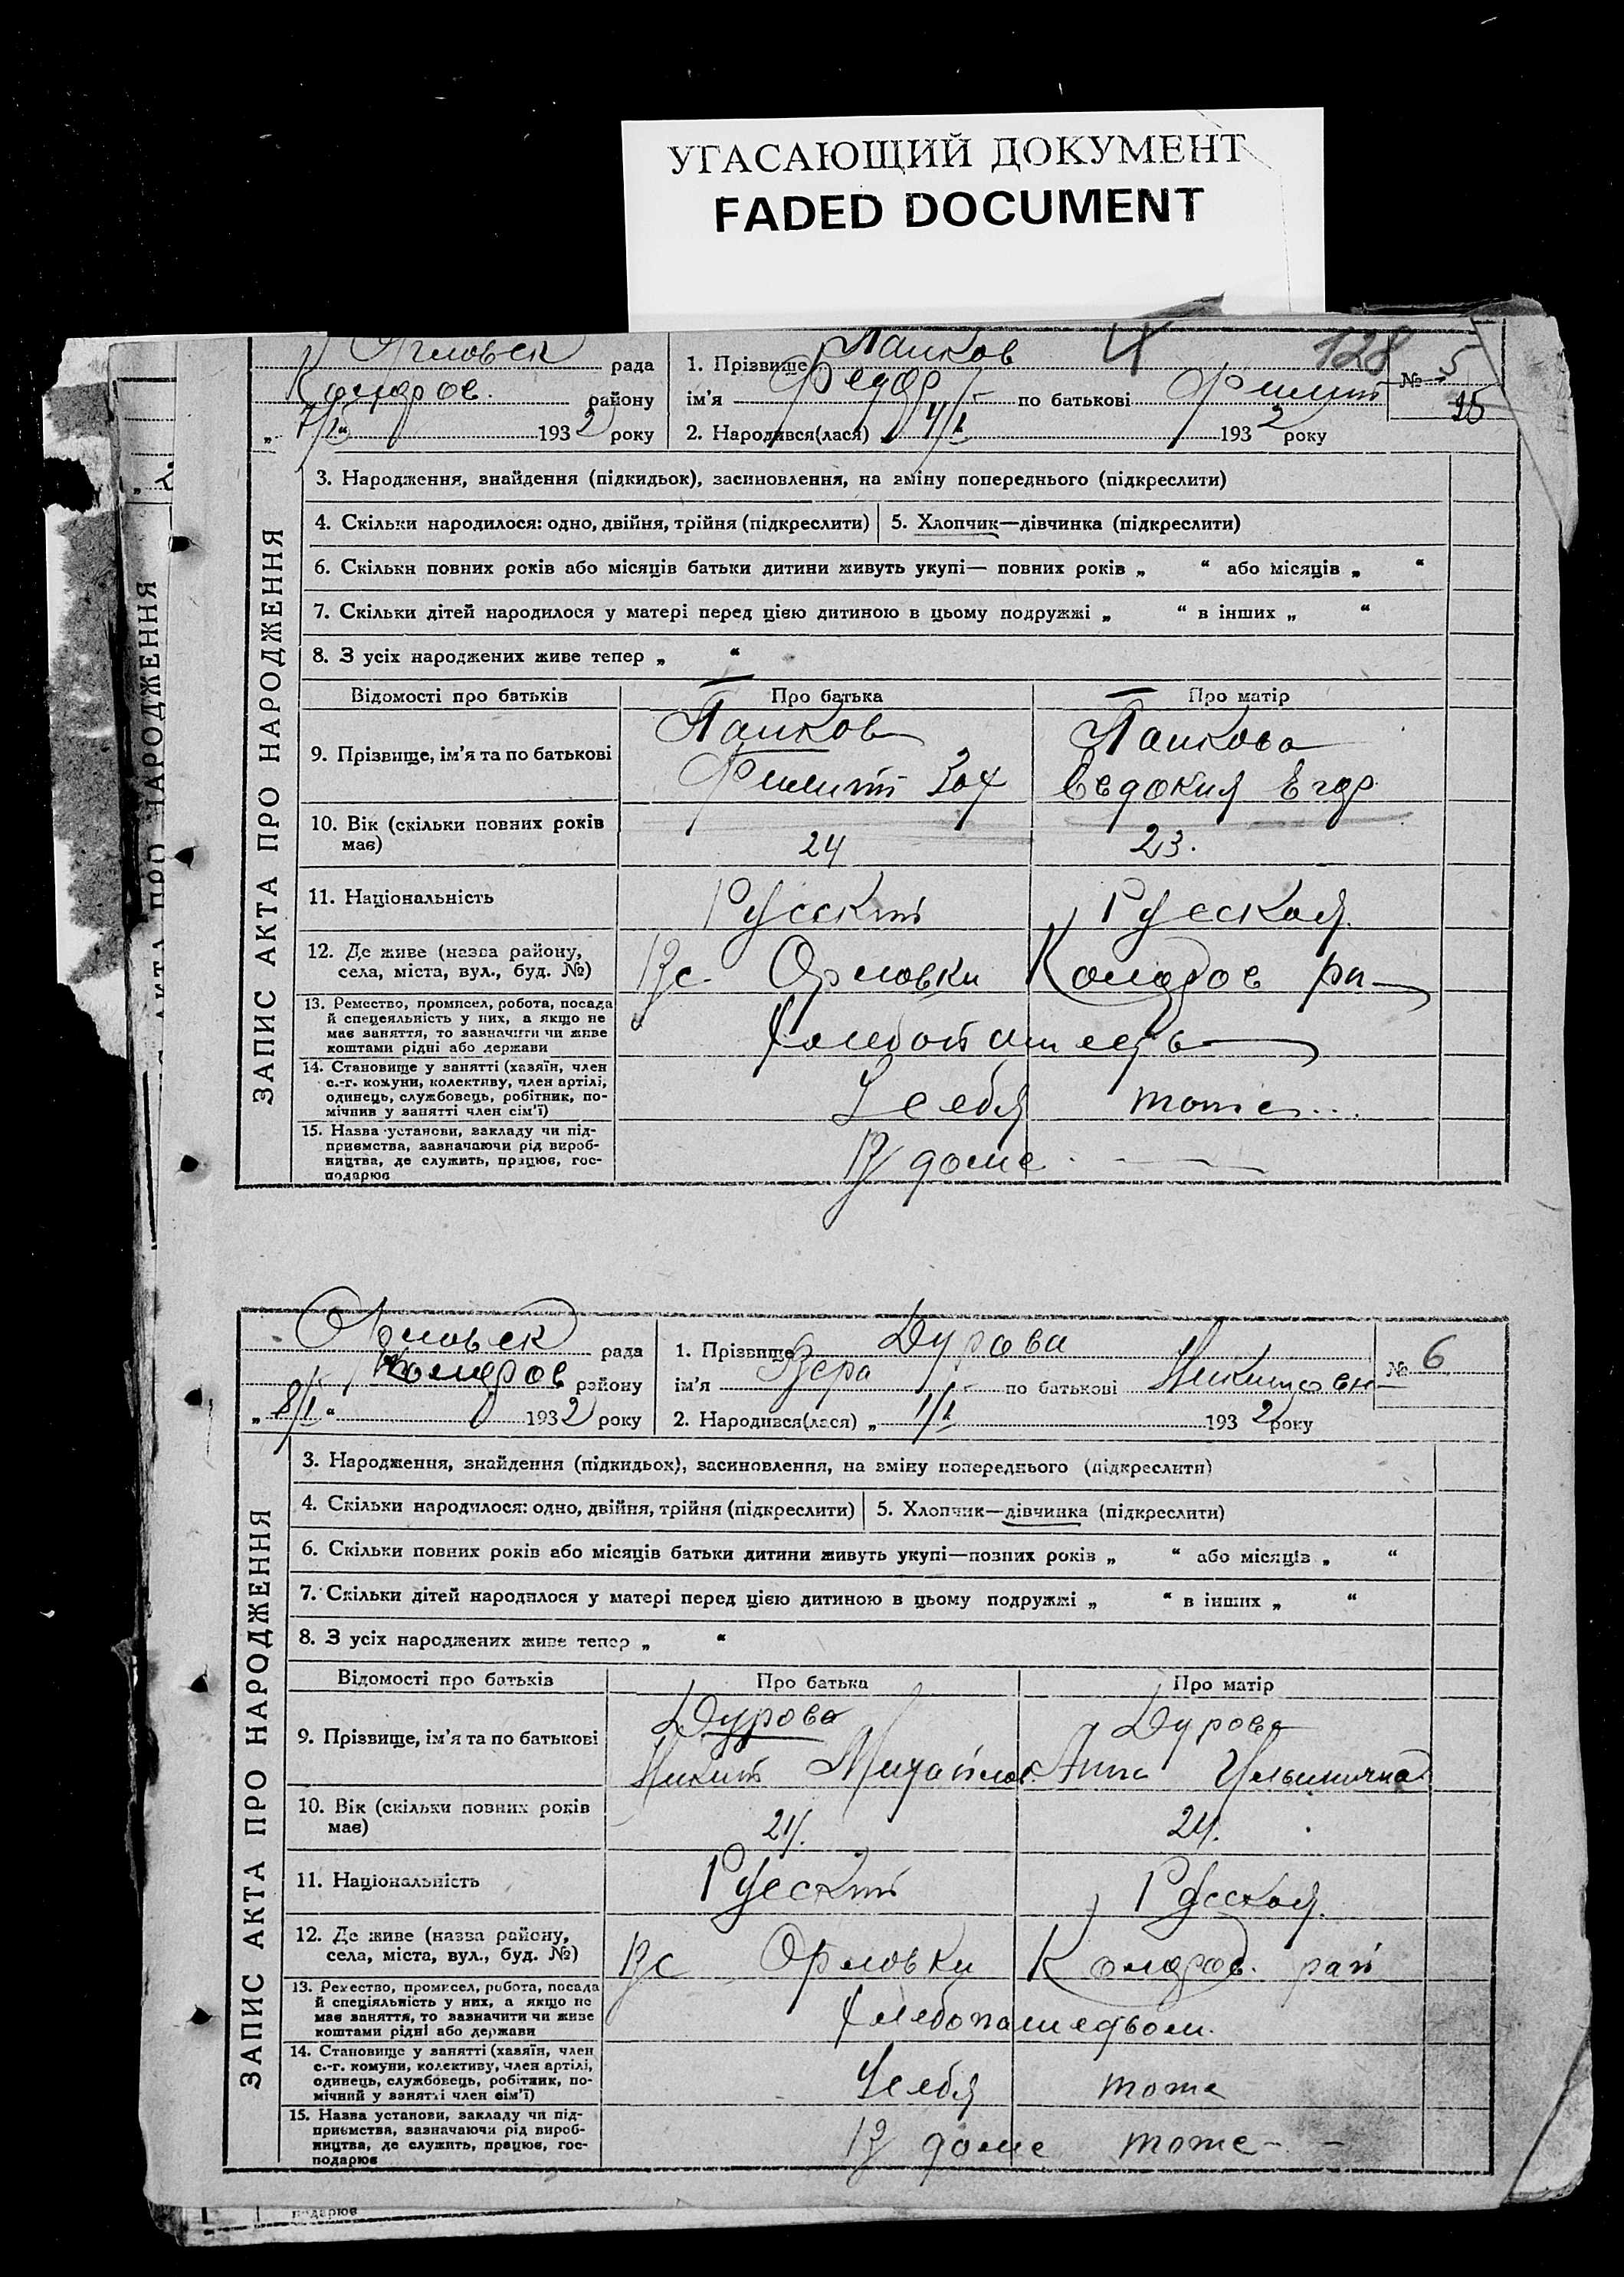 УГАСАЮЩИЙ ДОКУМЕНТ
FADED DOCUMENT
Орловск рада
района району
„7/I“ 1932 року
1. Прізвище Панков
ім’я Федор по батькові Филип
2. Народився(лася) 4/I 1932 року
4 128
№ 5
ЗАПИС АКТА ПРО НАРОДЖЕННЯ
3. Народження, знайдення (підкидьок), засиновлення, на зміну попереднього (підкреслити)
4. Скільки народилося: одно, двійня, трійня (підкреслити) 5. Хлопчик—дівчинка (підкреслити)
6. Скільки повних років або місяців батьки дитини живуть укупі— повних років „ “ або місяців „ “
7. Скільки дітей народилося у матері перед цією дитиною в цьому подружжі „ “ в інших „ “
8. З усіх народжених живе тепер „ “
Відомості про батьків Про батька Про матір
9. Прізвище, ім’я та по батькові
Панков Панкова
Филип Зах Евдокия Егор
10. Вік (скільки повних років має) 24 23.
11. Національність Русский Русская
12. Де живе (назва району, села, міста, вул., буд. №) В с Орловки рн
13. Ремество, промисел, робота, посада й спецеяльність у них, а якщо не має заняття, то зазначити чи живе коштами рідні або держави
14. Становище у занятті (хазяїн, член с.-г. комуни, колективу, член артілі, одинець, службовець, робітник, помічнив у занятті член сім’ї) У себя тоже
15. Назва установи, закладу чи підприємства, зазначаючи рід виробництва, де служить, працює, господарює В доме
Орловск рада
району
„8/I“ 1932 року
1. Прізвище Дурова
ім’я Вера по батькові Никитовн
2. Народився(лася) „ 1/I 1932 року
№ 6
ЗАПИС АКТА ПРО НАРОДЖЕННЯ
3. Народження, знайдення (підкидьох), засиновлення, на зміну попереднього (підкреслити)
4. Скільки народилося: одно, двійня, трійня (підкреслити) 5. Хлопчик—дівчинка (підкреслити)
6. Скільки повних років або місяців батьки дитини живуть укупі—повних років „ “ або місяців „ “
7. Скільки дітей народилося у матері перед цією дитиною в цьому подружжі „ “ в інших „ “
8. З усіх народжених живе тепер „ “
Відомості про батьків Про батька Про матір
9. Прізвище, ім’я та по батькові
Дурова Дурова
Никит Михайлов Анна Ильинична
10. Вік (скільки повних років має) 24. 24.
11. Національність Русский Русская
12. Де живе (назва району, села, міста, вул., буд. №) В с Орловки рай
13. Ремество, промисел, робота, посада й спеціяльність у них, а якщо не має заняття, то зазначити чи живе коштами рідні або держави Хлебопашедвом.
14. Становище у занятті (хазяїн, член с.-г. комуни, колективу, член артілі, одинець, службовець, робітник, помічний у занятті член сім’ї) У себя тоже
15. Назва установи, закладу чи підприємства, зазначаючи рід виробництва, де служить, працює, господарює В доме тоже